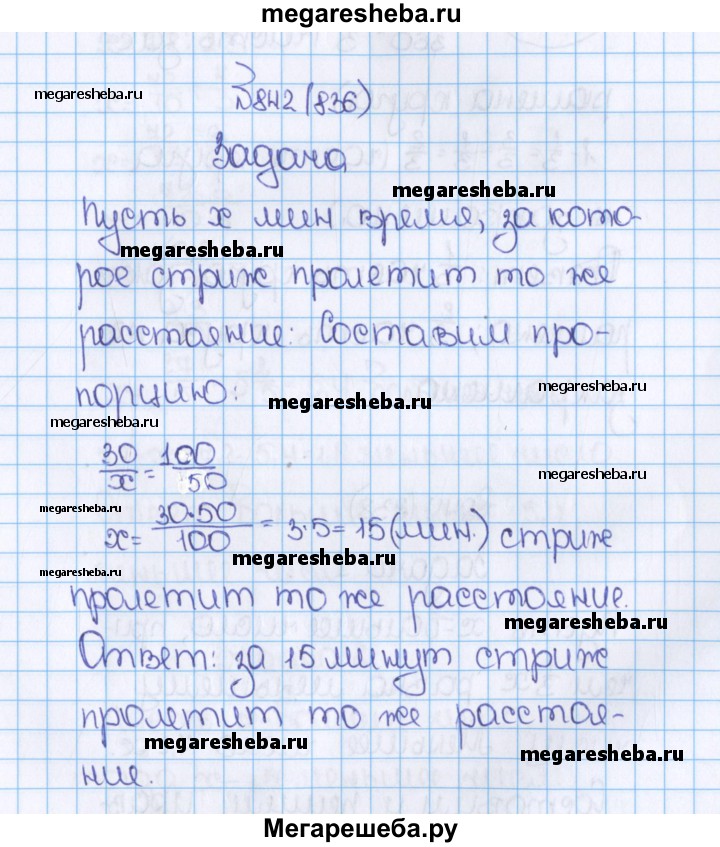 megaresheba.ru
megaresheba.ru
№842 (836)
Задача
megaresheba.ru
Пусть x мин время, за кото-
megaresheba.ru
рое стриж пролетит то же
расстояние: Составим про-
порцию:
megaresheba.ru
megaresheba.ru
megaresheba.ru
30/x = 100/50
megaresheba.ru
megaresheba.ru
x = 30·50/100 = 3·5 = 15 (мин.) стриж
megaresheba.ru
megaresheba.ru
пролетит то же расстояние.
megaresheba.ru
Ответ: за 15 минут стриж
пролетит то же расстоя-
megaresheba.ru
megaresheba.ru
ние.
Мегарешеба.ру